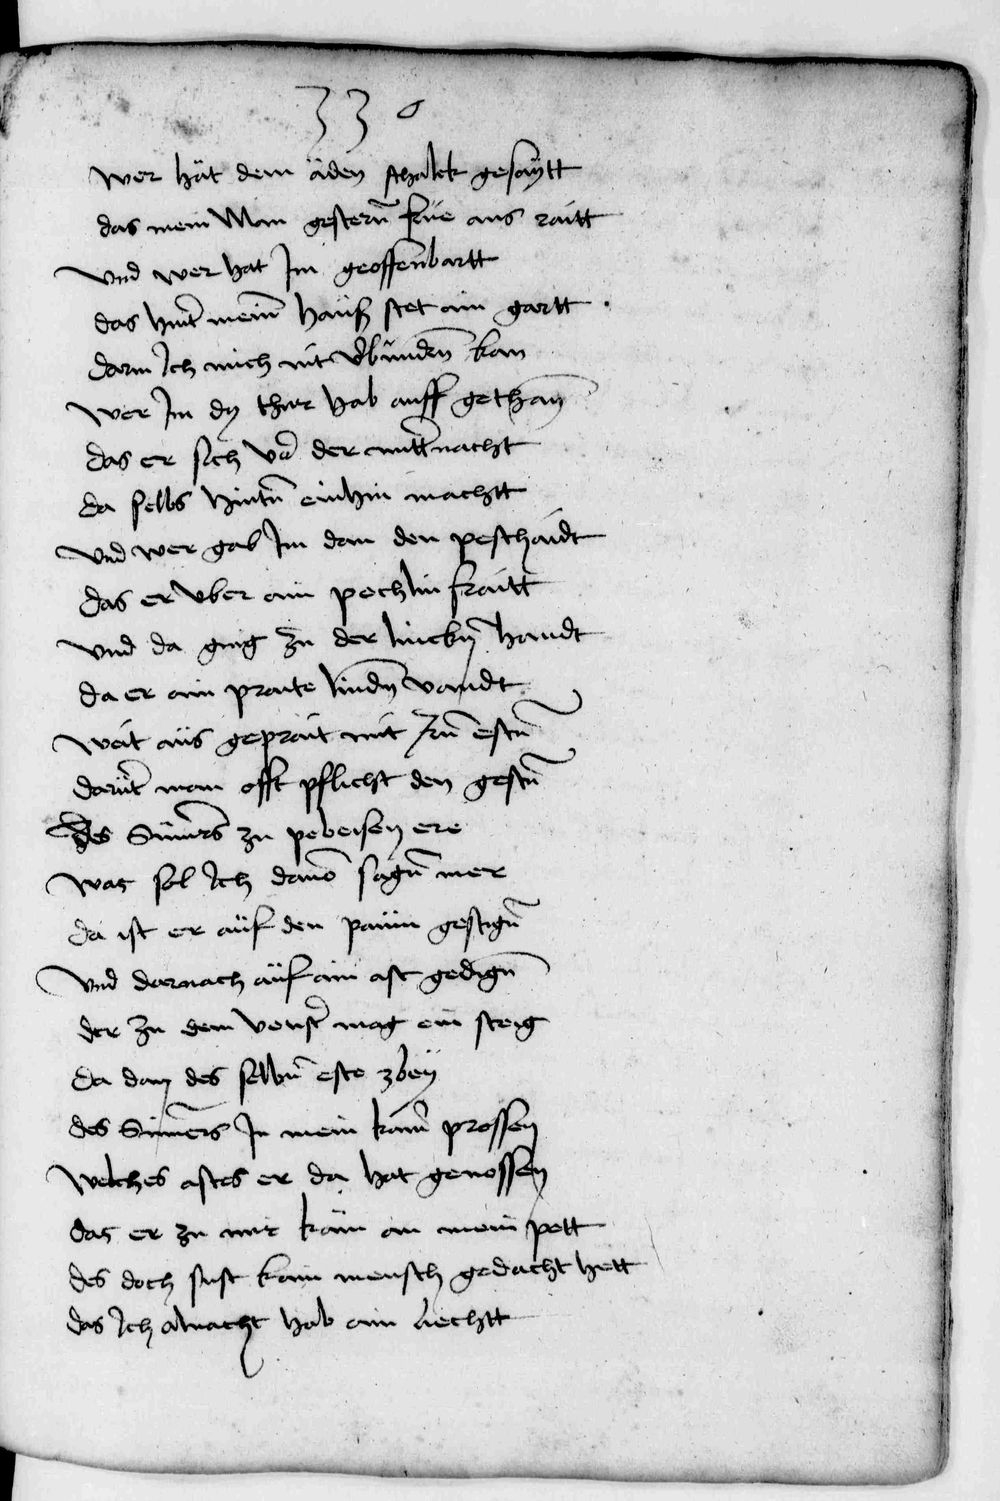 330
wer hät dem äden schalck gesaÿtt
das mein Man gestern̄ frue aus raitt
vnd wer hat Im geoffenbartt
das hint̄ mein̄ hauß stet ain gartt .
darin Ich mich nit v̄bunden̄ kan
wer Im dy thur hab auff gethan̄
das er sich vo᷑ der mitt̄nacht
da selbs hintn̄ einhin machtt
vnd wer gab Im dan den peschaidt
das er vber ain pechlin fraitt
vnd da ging zu der linckn̄ handt
da er ain praite lindn̄ vandt
weit aüs geprait mit Irn̄ estn̄
darüt̄ man offt pflicht den gestn̄
des Sum̄ers zu pebeisen ere
was sol Ich dauo᷑ sagn̄ mer
da ist er aüf den paüm gestign̄
vnd darnach aüf ain ast gedign̄
der zu dem venst̄ mag ein steig
da dan des selbn̄ este zbeÿ
des Sum̄ers In mein kam̄ prossen
welches astes er da hat genossen
das er zu mir käm an mein pett
des doch sust kain mensch gedacht hett
das Ich alnacht hab ain liechtt